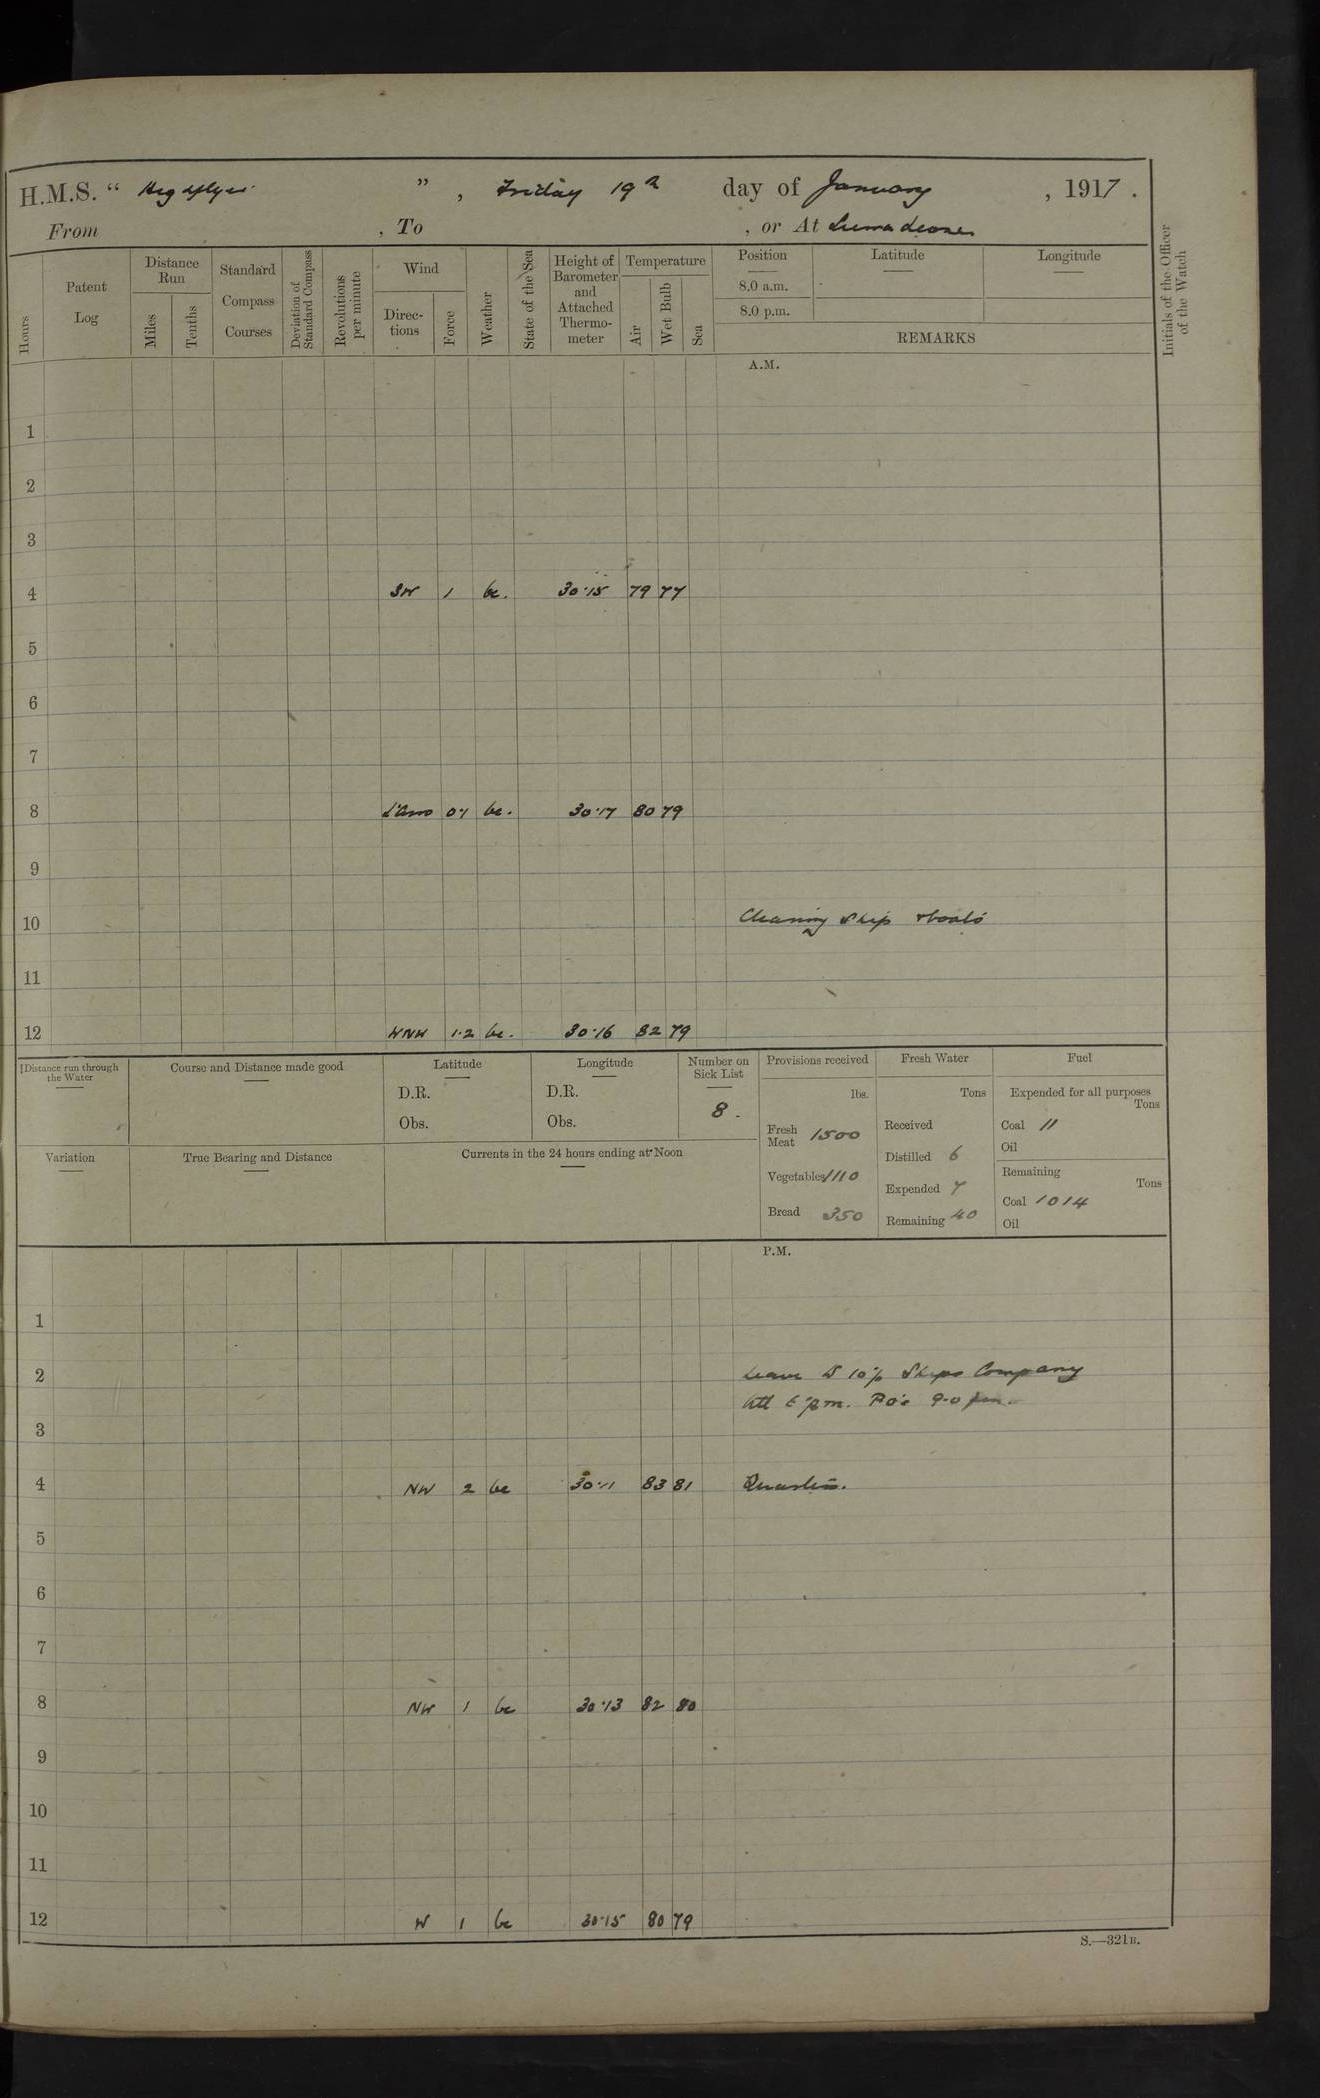 H.M.S. “ Highflyer ” , Friday 19th day of January , 1917 .
From , To , or At Sierra Leone
Hours
Patent Log
Distance Run
Miles
Tenths
Standard Compass Courses
Deviation of Standard Compass
Revolutions per minute
Wind
Directions
Force
Weather
State of the Sea
Height of Barometer and Attached Thermometer
Temperature
Air
Wet Bulb
Sea
Position
8.0 a.m.
8.0 p.m.
Latitude
Longitude
REMARKS
Initials of the Officer of the Watch
A.M.
1
2
3
4 SW 1 bc. 30.15 79 77
5
6
7
8 0.1 bc. 30.17 80 79
9
10 Cleaning Ship & boats
11
12 WNW 1.2 bc. 30.16 82 79
Distance run through the Water
Course and Distance made good
Latitude
D.R.
Obs.
Longitude
D.R.
Obs.
Number on Sick List
8.
Variation
True Bearing and Distance
Currents in the 24 hours ending at Noon
Provisions received
lbs.
Fresh Meat 1500
Vegetables 1110
Bread 350
Fresh Water
Tons
Received
Distilled 6
Expended 7
Remaining 40
Fuel
Expended for all purposes
Tons
Coal 11
Oil
Remaining
Tons
Coal 1014
Oil
P.M.
1
2 Leave to 10% Ships Company
till 6 pm. PO's 9.0 pm.
3
4 NW 2 bc 30.11 83 81 Quarters.
5
6
7
8 NW 1 bc 30.13 82 80
9
10
11
12 W 1 bc 30.15 80 79
S.—321B.